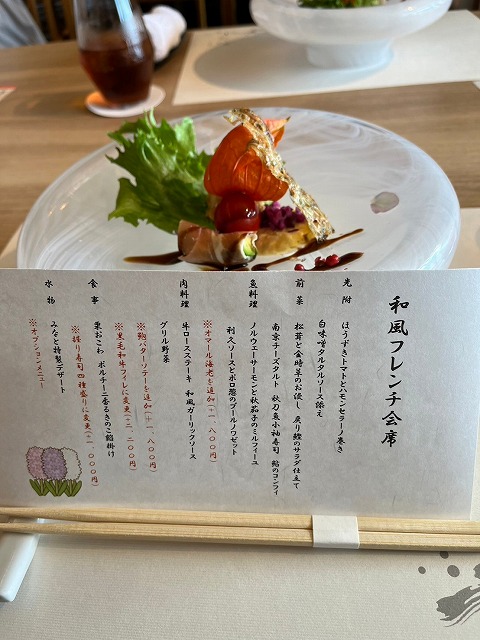 和風フレンチ会席
先附
ほうずきトマトとハモンセラーノ巻き
白味噌タルタルソース添え
前菜
松茸と金時草のお浸し 戻り鰹のサラダ仕立て
南京チーズタルト 秋刀魚小袖寿司 鮎のコンフィ
魚料理
ノルウェーサーモンと秋茄子のミルフィーユ
利久ソースとポロ葱のブールノワゼット
※オマール海老を追加(+一、八〇〇円)
肉料理
牛ロースステーキ 和風ガーリックソース
グリル野菜
※鮑バターソテーを追加(+一、八〇〇円)
※黒毛和牛フィレに変更(+二、二〇〇円)
食事
栗おこわ ポルチーニ香るきのこ餡掛け
※握り寿司四種盛りに変更(+一、〇〇〇円)
水物
みなと特製デザート
※オプションメニュー